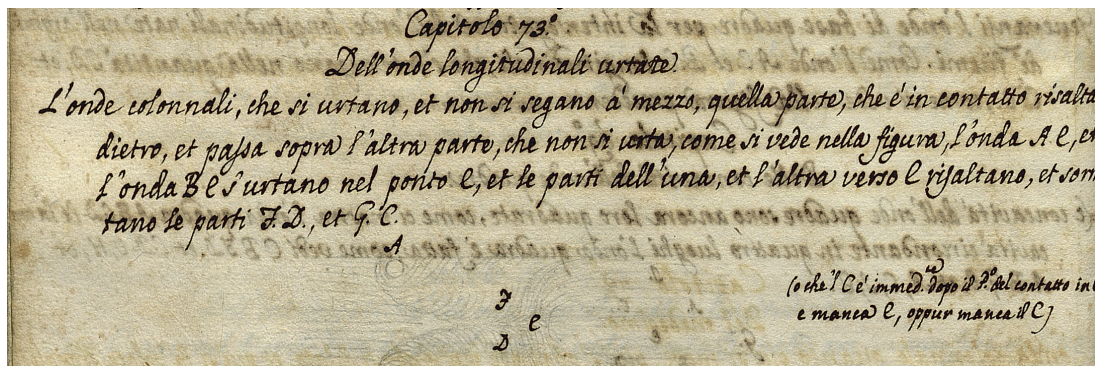 Capitolo 73.º
Dell'onde longitudinali urtate
L'onde colonnali, che si urtano, et non si segano à mezzo, quella parte, che é in contatto risalta
dietro, et passa sopra l'altra parte, che non si urta, come si vede nella figura, l'onda A e, et
l'onda B e s'urtano nel ponto e, et le parti dell'una, et l'altra verso e risaltano, et sorn
tano le parti F. D., et G. C.
A
F
e
D
(o che'l C é immed.te dopo il P.º del contatto in
e manca e, oppur manca il C)